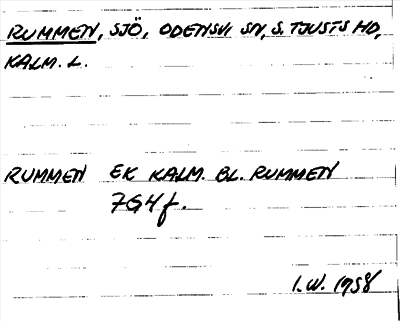 RUMMEN, SJÖ, ODENSVI SN, S. TJUSTS HD,
KALM. L.
RUMMEN EK KALM. BL. RUMMEN
7G4f.
I.W. 1958